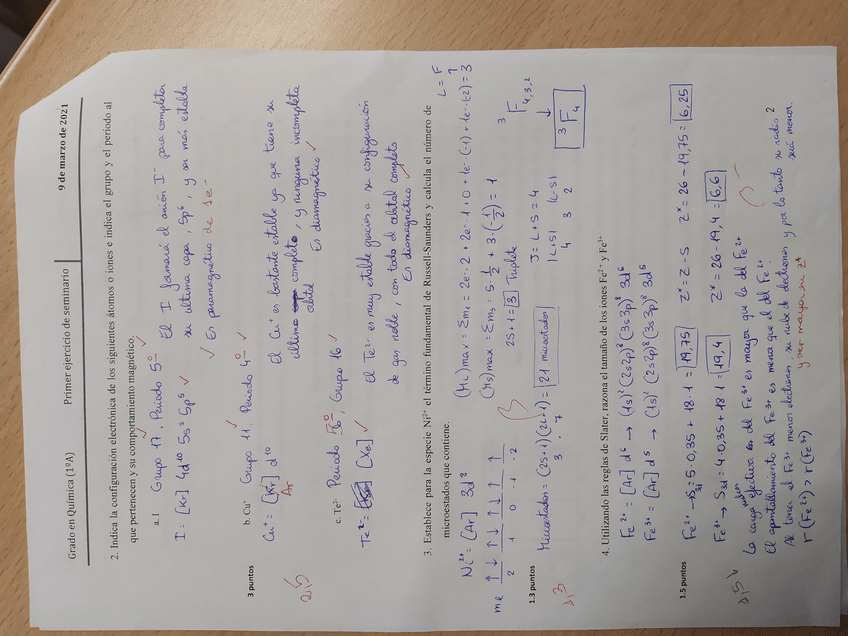 Grado en Química (1ºA) Primer ejercicio de seminario 9 de marzo de 2021
2. Indica la configuración electrónica de los siguientes átomos o iones e indica el grupo y el período al
que pertenecen y su comportamiento magnético.
a. I Grupo 17, Periodo 5º
El I formará el anión I⁻ para completar
I = [Kr] 4d¹⁰ 5s² 5p⁵
su última capa, 5p⁶, y ser más estable
Es paramagnético de 1e⁻
b. Cu⁺ Grupo 11, Periodo 4º
3 puntos
Cu⁺ = [Kr] d¹⁰
Ar
El Cu⁺ es bastante estable ya que tiene su
último completo, y ninguna incompleta
orbital Es diamagnético
2,5
c. Te²⁻ Periodo 5º, Grupo 16
Te²⁻ = [Xe]
El Te²⁻ es muy estable gracias a su configuración
de gas noble, con todo el orbital completo
Es diamagnético
3. Establece para la especie Ni²⁺ el término fundamental de Russell-Saunders y calcula el número de
microestados que contiene.
L = F
Ni²⁺ = [Ar] 3d⁸
(ML)max = Σml = 2e⁻·2 + 2e⁻·1 + 0 + 1e⁻·(-1) + 1e⁻·(-2) = 3
ml ↑↓ ↑↓ ↑↓ ↑ ↑
2 1 0 -1 -2
(Ms)max = Σms = 5 1/2 + 3·(-1/2) = 1
2S+1 = 3 Triplete
³F4,3,2
1.3 puntos
Microestados = (2S+1)(2L+1) = 21 microestados
3 · 7
J = L+S = 4
|L+S| |L-S|
4 3 2
³F₄
1,3
4. Utilizando las reglas de Slater, razona el tamaño de los iones Fe²⁺ y Fe³⁺
Fe²⁺ = [Ar] d⁶ → (1s)² (2s2p)⁸ (3s3p)⁸ 3d⁶
Fe³⁺ = [Ar] d⁵ → (1s)² (2s2p)⁸ (3s3p)⁸ 3d⁵
1.5 puntos
Fe²⁺ → S3d = 5·0,35 + 18·1 = 19,75 Z* = Z - S Z* = 26 - 19,75 = 6,25
Fe³⁺ → S3d = 4·0,35 + 18·1 = 19,4 Z* = 26 - 19,4 = 6,6
La carga nuclear efectiva del Fe³⁺ es mayor que la del Fe²⁺
El apantallamiento del Fe³⁺ es menor que el del Fe²⁺
Al tener el Fe³⁺ menos electrones, su nube de electrones y por lo tanto su radio
será menor.
r(Fe²⁺) > r(Fe³⁺) y ser mayor su Z*
1,5
2